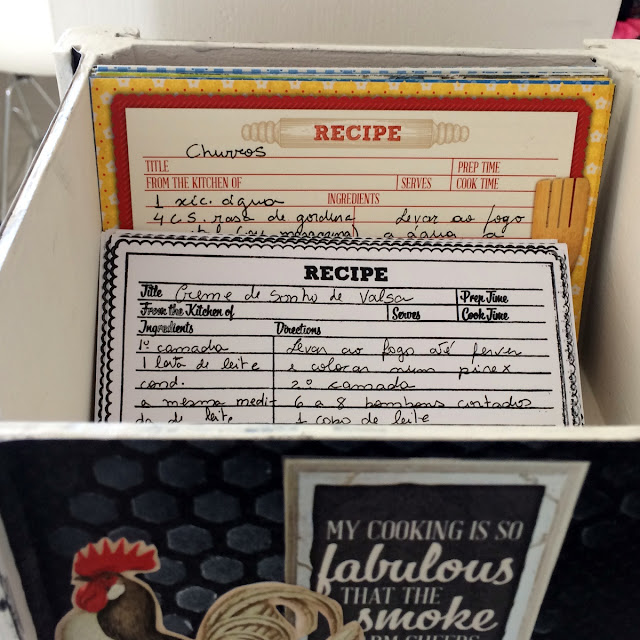 RECIPE
Churros
TITLE PREP TIME
FROM THE KITCHEN OF SERVES COOK TIME
1 xíc. água INGREDIENTS
4 C.S. rasa de gordura Levar ao fogo
a água
RECIPE
Title Creme de Sonho de Valsa Prep Time
From the Kitchen of Serves Cook Time
Ingredients Directions
1º camada Levar ao fogo até ferver
1 lata de leite e colocar num pirex
cond. 2º camada
a mesma medi- 6 a 8 bombons cortados
da de leite 1 copo de leite
MY COOKING IS SO
fabulous
THAT THE
smoke